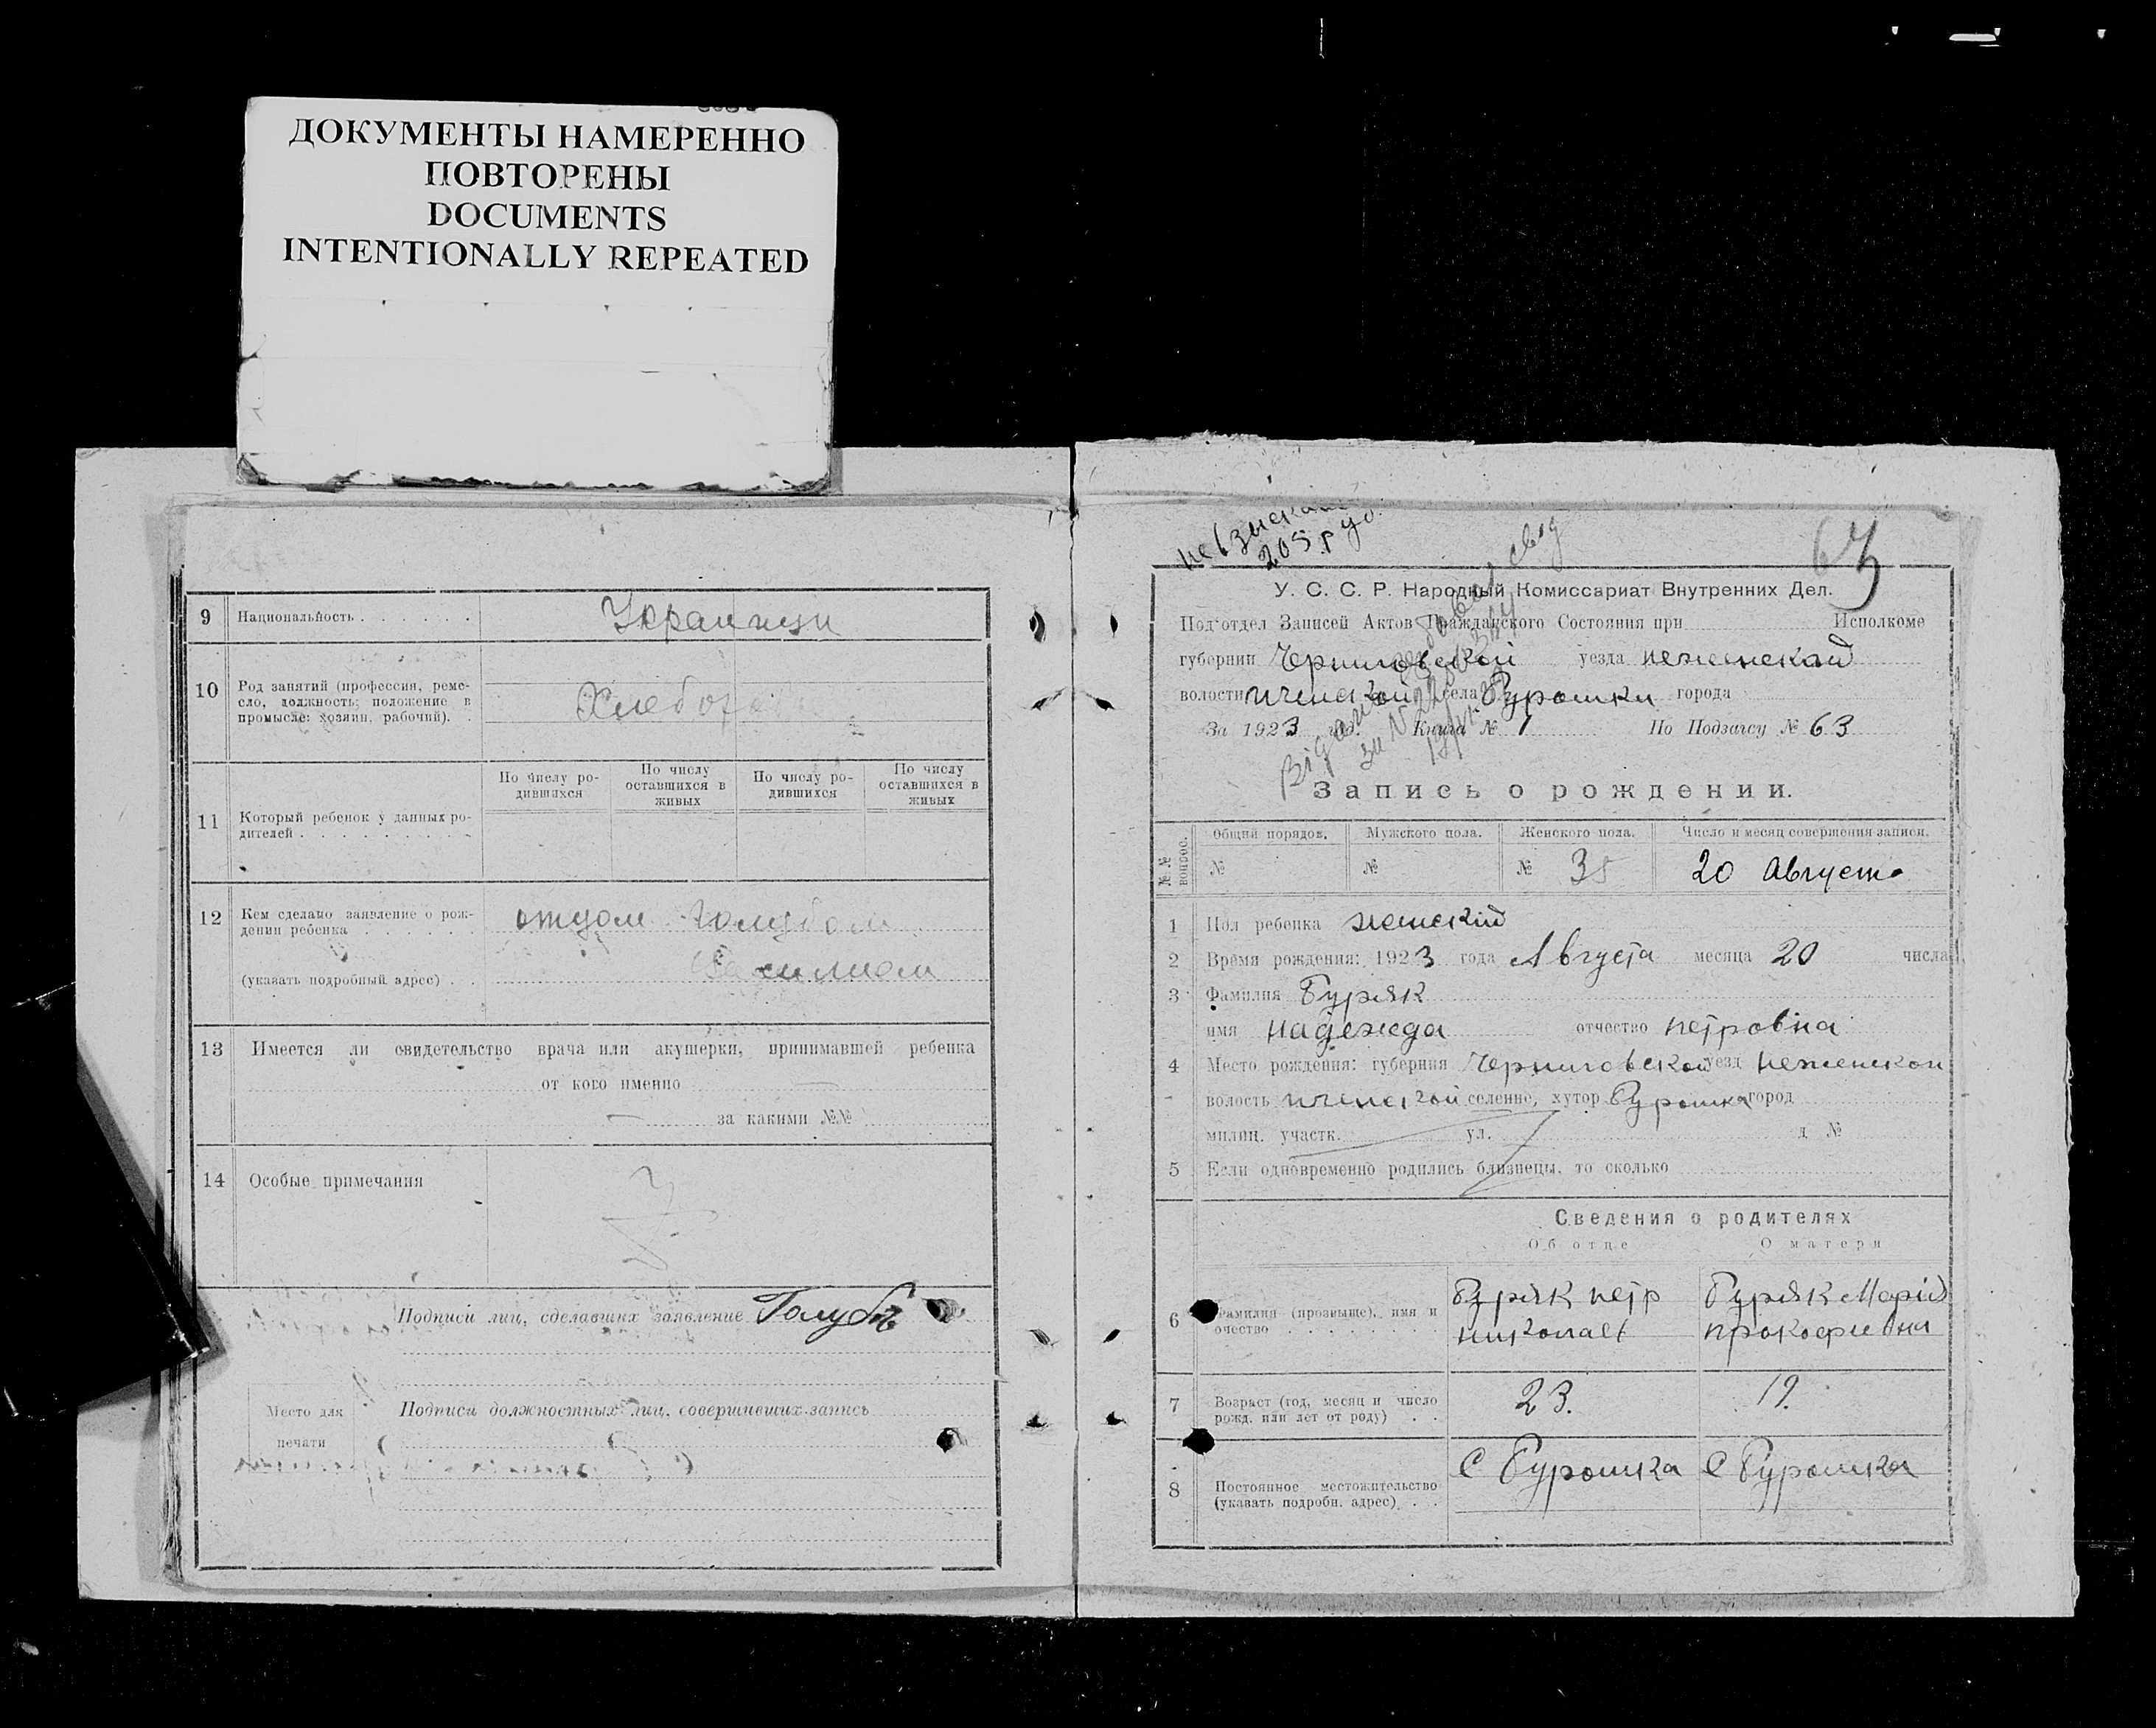 ДОКУМЕНТЫ НАМЕРЕННО
ПОВТОРЕНЫ
DOCUMENTS
INTENTIONALLY REPEATED
9 Национальность Украинци
10 Род занятий (профессия, реме-
сло, должность; положение в
промысле: хозяин, рабочий).
11 Который ребенок у данных ро-
дителей
По числу ро-
дившихся
По числу
оставшихся в
живых
По числу ро-
дившихся
По числу
оставшихся в
живых
12 Кем сделано заявление о рож-
дении ребенка отцом Голубом
Василием
(указать подробный адрес)
13 Имеется ли свидетельство врача или акушерки, принимавшей ребенка
от кого именно
за какими №№
14 Особые примечания
Подписи лиц, сделавших заявление Голубъ
Место для
печати
Подписи должностных лиц, совершивших запись
205 р
63
У. С. С. Р. Народный Комиссариат Внутренних Дел.
Под'отдел Записей Актов Гражданского Состояния при Исполкоме
губернии Черниговской уезда неженской
волости ичнской села Бурошки города
За 1923 год. Книга № 1 По Подзагсу № 63
Запись о рождении.
№№ вопрос.
Общий порядов. Мужского пола. Женского пола. Число и месяц совершения записи.
№ № № 35 20 Августа
1 Пол ребенка женский
2 Время рождения: 1923 года Августа месяца 20 числа
3 Фамилия Буряк
имя надежда отчество петровна
4 Место рождения: губерния Черниговской уезд неженской
волость селение, хутор Бурошка город
милиц. участк. ул. д №
5 Если одновременно родились близнецы, то сколько
Сведения о родителях
Об отце О матери
6 Фамилия (прозвище), имя и
очество
Буряк петр
николает
Буряк Марія
прокофиевна
7 Возраст (год, месяц и число
рожд. или лет от роду)
23. 19.
8 Постоянное местожительство
(указать подробн. адрес)
С Бурошка С Бурошка